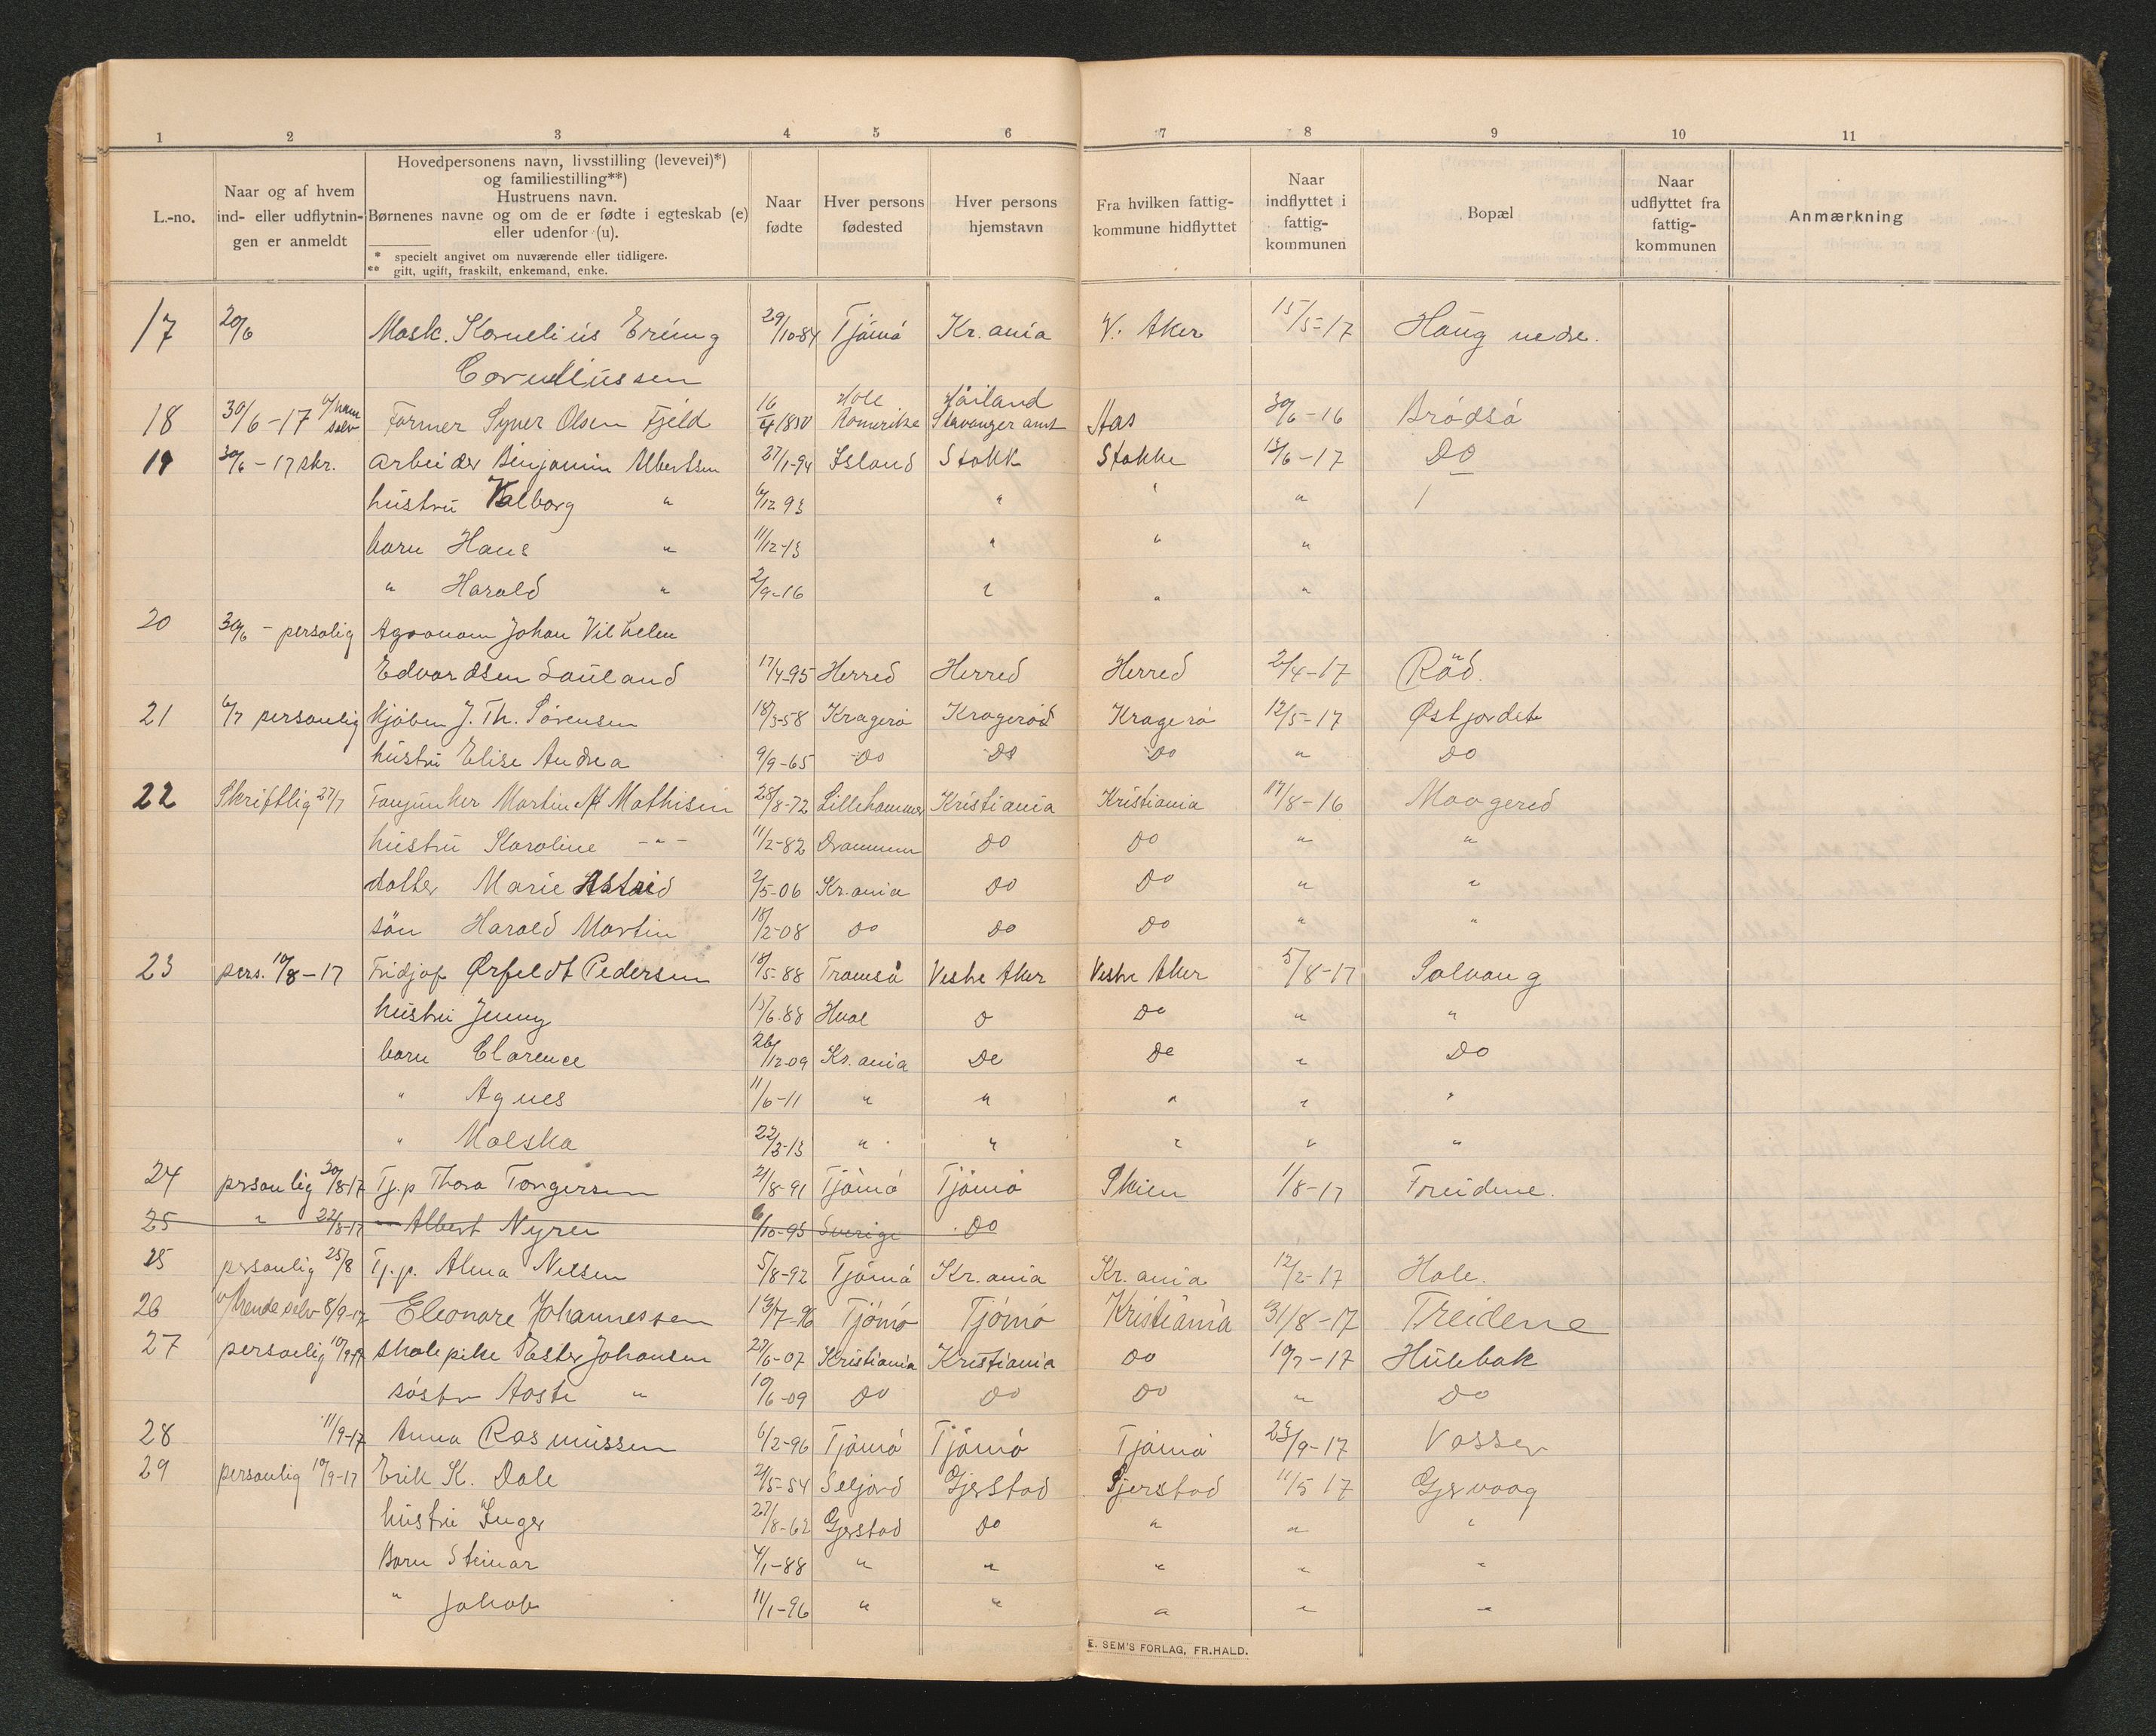 1 2 3 4 5 6 7 8 9 10 11
L.-no.
Naar og af hvem
ind- eller udflytnin-
gen er anmeldt
Hovedpersonens navn, livsstilling (levevei)*)
og familiestilling**)
Hustruens navn.
Børnenes navne og om de er fødte i egteskab (e)
eller udenfor (u).
* specielt angivet om nuværende eller tidligere.
** gift, ugift, fraskilt, enkemand, enke.
Naar
fødte
Hver persons
fødested
Hver persons
hjemstavn
Fra hvilken fattig-
kommune hidflyttet
Naar
indflyttet i
fattig-
kommunen
Bopæl
Naar
udflyttet fra
fattig-
kommunen
Anmærkning
17 20/6 Mask. Kornelius Erling 29/10-84 Tjömö Kr.ania V. Aker 15/5-17 Haug nedre.
Cornelliussen
18 30/6-17 v/ham selv Former Syver Olsen Fjeld 16/4 1850 Hole Romerike Höiland Stavanger amt Aas 30/6-16 Brödsö
19 30/6-17 skr. Arbeider Benjamin Albertsen 27/1-94 Island Stokk Stokke 15/6-17 Do
hustru Valborg " 6/12 93 " " "
barn Hans " 11/12-13 " " "
" Harald " 2/9-16 " " "
20 30/6 - persolig Agronom Johan Vilhelm
Edvardsen Lauland 17/4-95 Herred Herred Herred 2/4-17 Röd.
21 6/7 personlig Kjöbm J. Th. Sörensen 18/3-58 Kragerö Kragerö Kragerö 12/5-17 Østjordet
hustru Elise Andrea 9/9-65 Do Do Do " Do
22 Skriftlig 27/7 Martin Mathisen 28/8-72 Lillehammer Kristiania Kristiania 17/8-16 Moagered
hustru Karoline -"- 11/2-82 Drammen Do Do " "
datter Marie Astrid 2/5-06 Kr.ania Do Do " "
sön Harald Martin 18/2-08 Do Do Do " "
23 pers. 10/8-17 Fridjof Ørfeldt Pedersen 18/5-88 Tromsö Vestre Aker Vestre Aker 5/8-17 Solvang
hustru Jenny 15/6-88 Hval Do " "
barn Clarence 26/12-09 Kr.ania Do Do " Do
" Agnes 11/6-11 " " " " "
" Valeska 22/3-13 " " " " "
24 personlig 20/8-17 Tj.p Thora Torgersen 21/8-91 Tjömö Tjömö Skien 1/8-17 Treidene.
25 " 22/8-17 Albert Nyren 6/10-95 Sverige Do
25 personlig 25/8 Tj.p. Alma Nilsen 5/8-92 Tjömö Kr.ania Kr.ania 12/2-17 Hole.
26 v/hende selv 8/9-17 Eleonore Johannessen 13/7-96 Tjömö Tjömö Kristiania 31/8-17 Treidene
27 personlig 10/9-17 skolepike Ester Johansen 27/6-07 Kristiania Kristiania Do 10/7-17 Hulebak
söster Aaste " 10/6-09 Do Do Do " Do
28 11/9-17 Anna Rasmussen 6/2-96 Tjömö Tjömö Tjömö 23/9-17 Vasser
29 personlig 19/9-17 Erik K. Dale 21/5-54 Seljord Gjerstad Gjerstad 11/5 17 Gjervaag
hustru Inger 27/8-62 Gjerstad Do " " "
Barn Steinar 4/1-88 " " " " "
" Jakob 11/1-96 " " " " "
E. SEM'S FORLAG, FR.HALD.